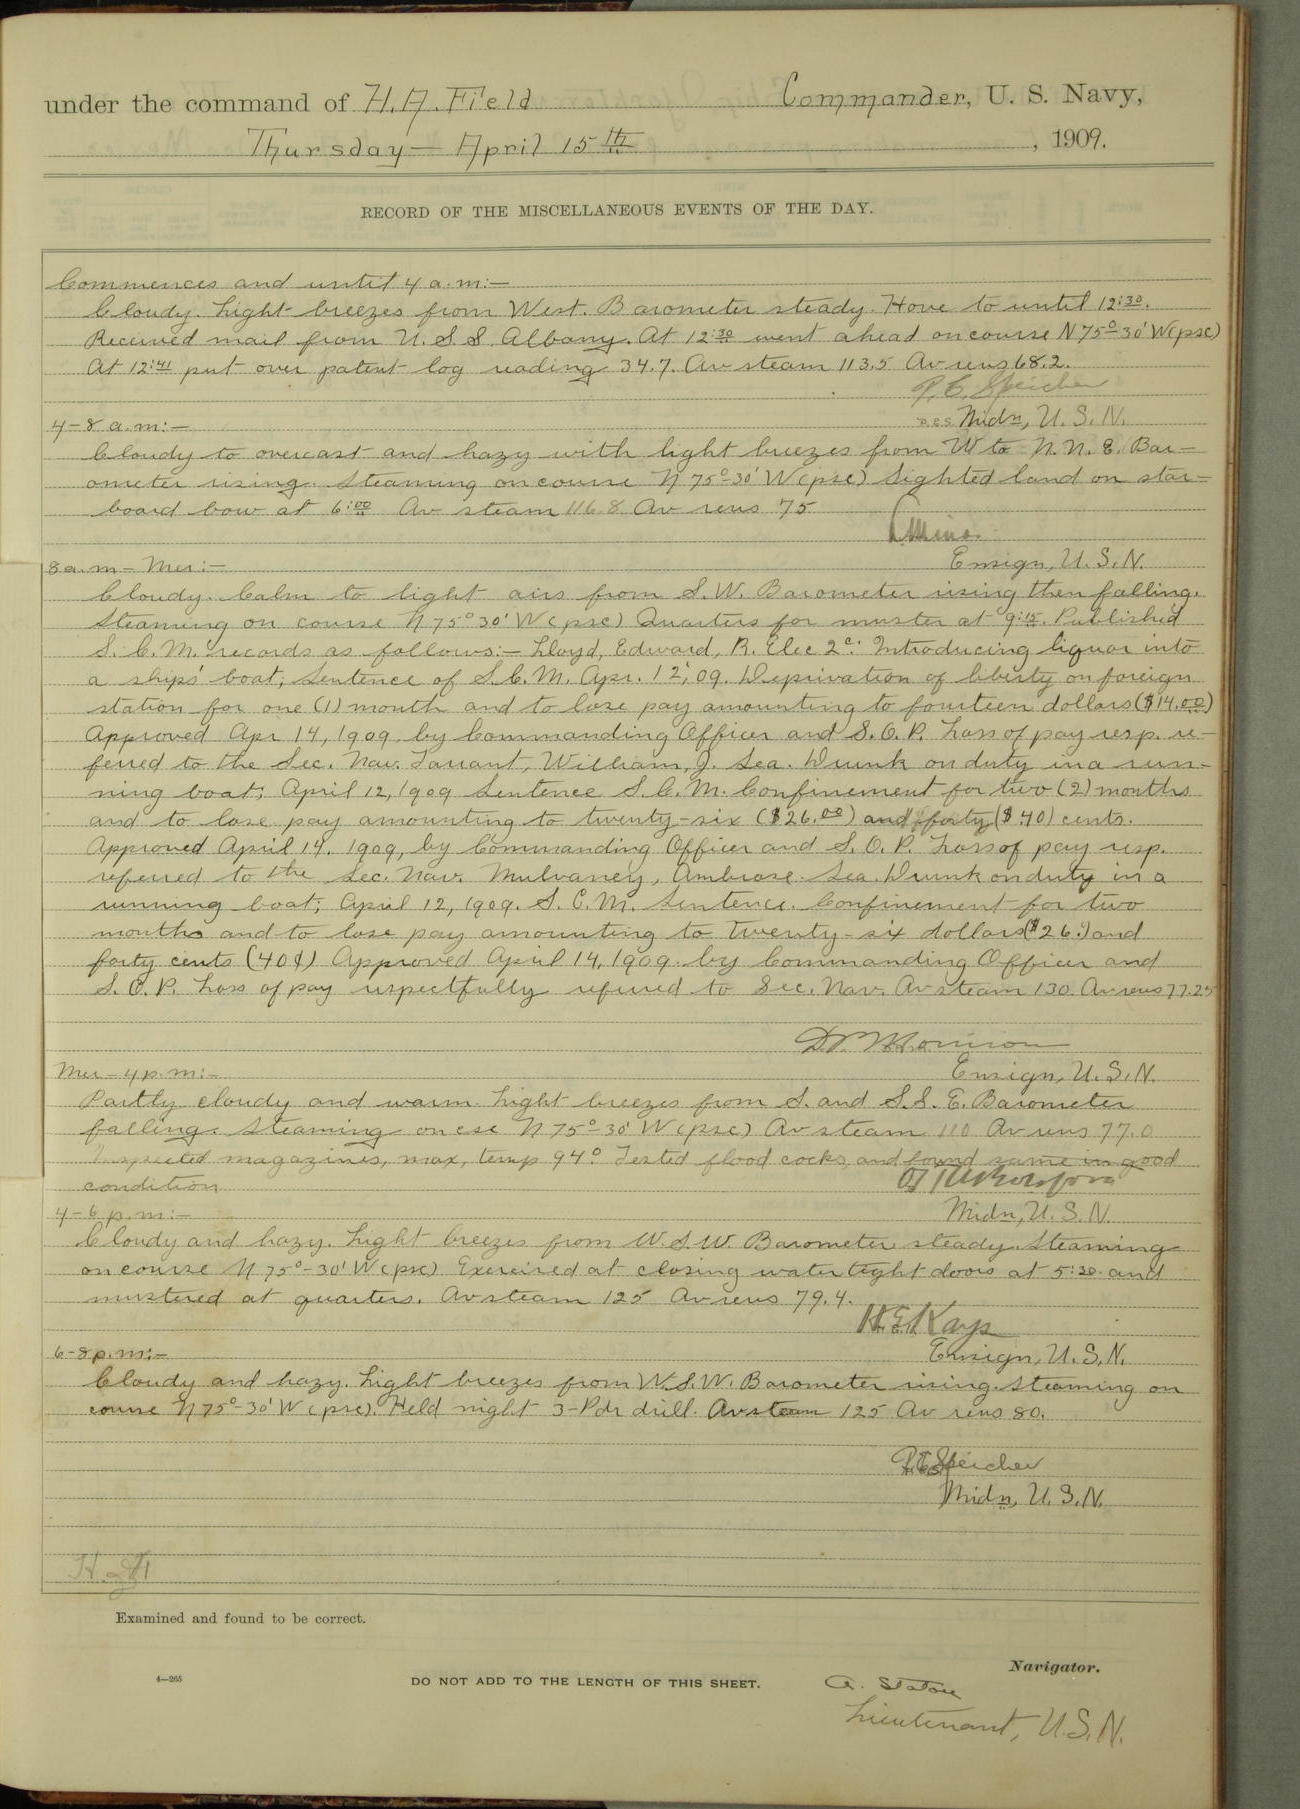 under the command of H.A. Field Commander, U. S. Navy,
Thursday — April 15th, 1909.
RECORD OF THE MISCELLANEOUS EVENTS OF THE DAY.
Commences and until 4 a.m:—
Cloudy. Light breezes from West. Barometer steady. Hove to until 12:30.
Received mail from U. S. S. Albany. At 12:30 went ahead on course N 75°-30' W (psc)
At 12:41 put over patent log reading 34.7. Av steam 113.5 Av revs 68.2.
P. E. Speicher
P.E.S. Midn, U. S. N.
4-8 a.m:—
Cloudy to overcast and hazy with light breezes from W to N. N. E. Bar-
ometer rising. Steaming on course N 75°-30' W (psc) Sighted land on star-
board bow at 6:00 Av steam 116.8 Av revs 75
Ensign, U. S. N.
8 a.m - Mer:—
Cloudy. Calm to light airs from S. W. Barometer rising then falling.
Steaming on course N 75° 30' W (psc) Quarters for muster at 9:15. Published
S. C. M. records as follows:— Lloyd, Edward, R. Elec 2c. Introducing liquor into
a ships' boat; Sentence of S. C. M. Apr. 12, '09. Deprivation of liberty on foreign
station for one (1) month and to lose pay amounting to fourteen dollars ($14.00)
Approved Apr 14, 1909. by Commanding Officer and S. O. P. Loss of pay resp. re-
ferred to the Sec. Nav. Tarrant, William, J. Sea. Drunk on duty in a run-
ning boat; April 12, 1909 Sentence S. C. M. Confinement for two (2) months
and to lose pay amounting to twenty-six ($26.00) and forty ($.40) cents.
Approved April 14, 1909, by Commanding Officer and S. O. P. Loss of pay resp.
referred to the Sec. Nav. Mulvaney, Ambrose. Sea. Drunk on duty in a
running boat; April 12, 1909. S. C. M. Sentence. Confinement for two
months and to lose pay amounting to twenty-six dollars ($26.) and
forty cents (40¢) Approved April 14, 1909. by Commanding Officer and
S. O. P. Loss of pay respectfully referred to Sec. Nav. Av steam 130. Av revs 77.25
Morrison
Ensign, U. S. N.
Mer - 4 p.m:—
Partly cloudy and warm. Light breezes from S. and S. S. E. Barometer
falling. Steaming on cse N 75°-30' W (psc) Av steam 110 Av revs 77.0
Inspected magazines, max, temp 94°. Tested flood cocks, and found same in good
condition
Midn, U. S. N.
4-6 p.m:—
Cloudy and hazy. Light breezes from W. S. W. Barometer steady. Steaming
on course N 75°-30' W (psc) Exercised at closing water tight doors at 5:30 and
mustered at quarters. Av steam 125 Av revs 79.4.
H.E. Kays
Ensign, U. S. N.
6-8 p.m:—
Cloudy and hazy. Light breezes from W. S. W. Barometer rising. Steaming on
course N 75°-30' W (psc). Held night 3-Pdr drill. Av steam 125 Av revs 80.
P.E. Speicher
Midn, U. S. N.
Examined and found to be correct.
Navigator.
4—265
DO NOT ADD TO THE LENGTH OF THIS SHEET.
A. Staton
Lieutenant, U. S. N.